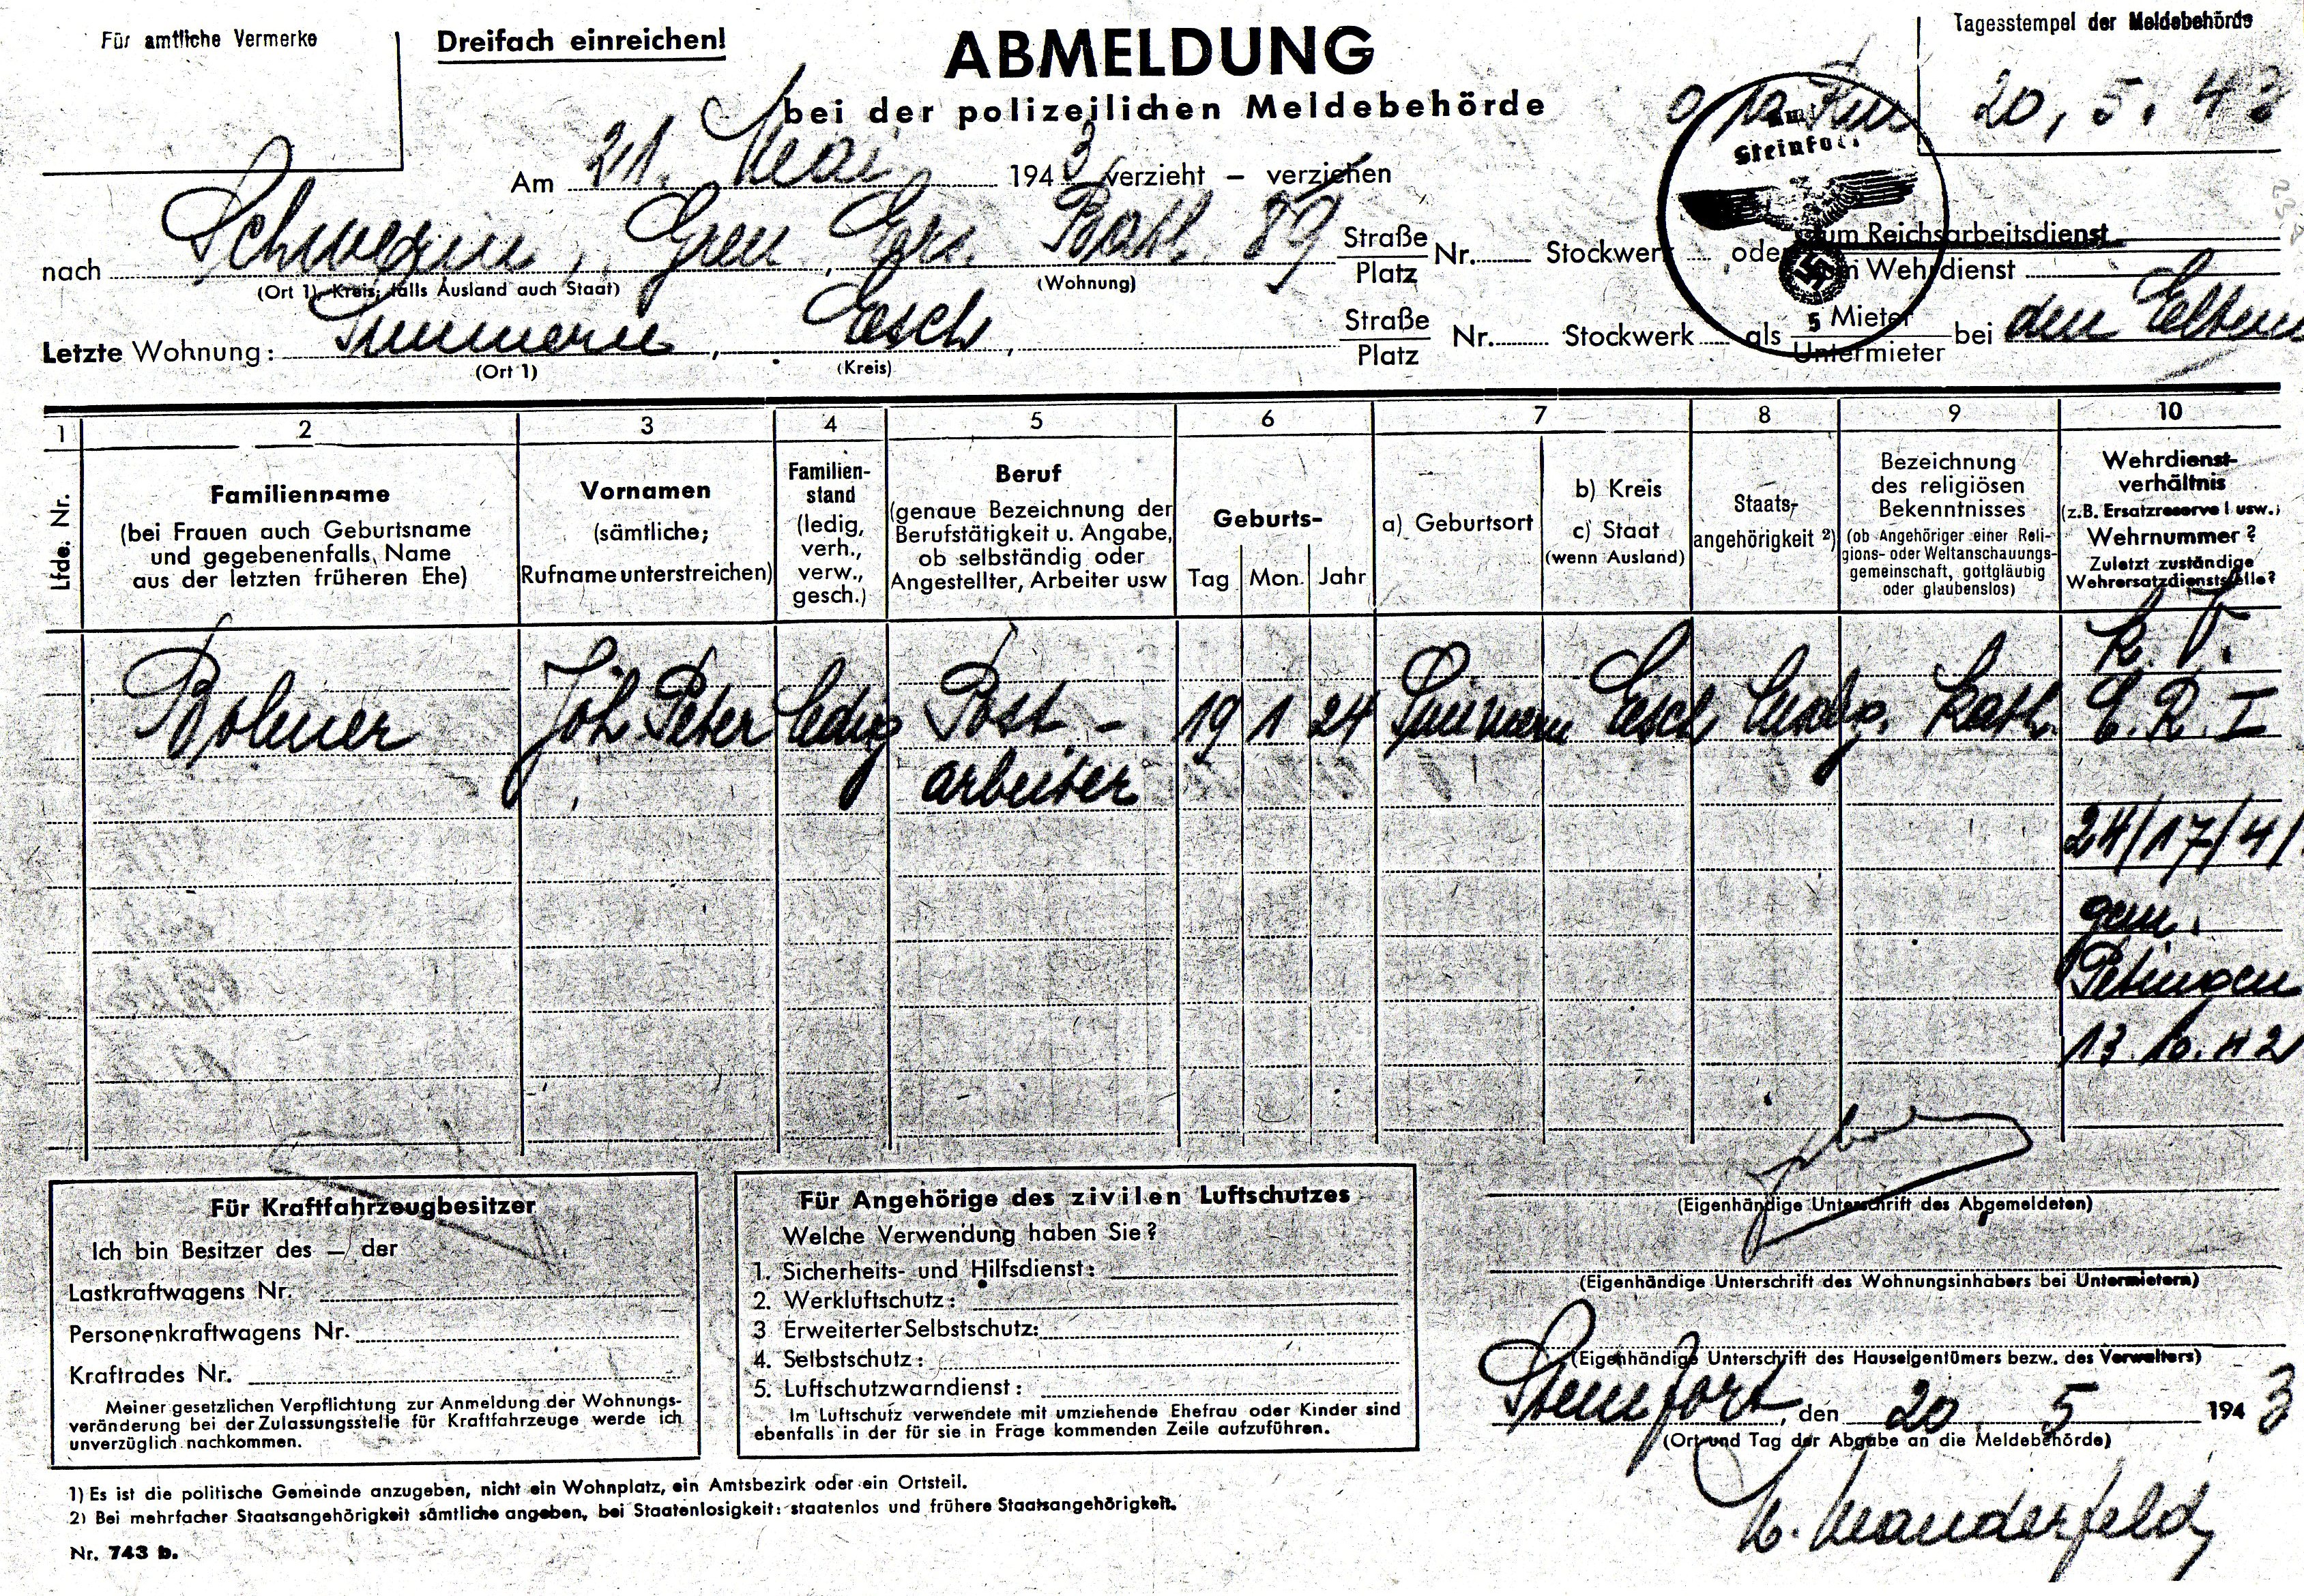 Für amtliche Vermerke
Dreifach einreichen!
ABMELDUNG
bei der polizeilichen Meldebehörde
Tagesstempel der Meldebehörde
20. 5. 43
Am 21. Mai 1943 verzieht – verziehen
Steinfort
nach Schwerin, Gren. Ers. Batl. 89 Straße Platz Nr. Stockwerk oder zum Reichsarbeitsdienst
zum Wehrdienst
(Ort 1) Kreis; falls Ausland auch Staat) (Wohnung)
Letzte Wohnung: Simmern, Esch, Straße Platz Nr. Stockwerk als Mieter Untermieter bei den Eltern
(Ort 1) (Kreis)
1 2 3 4 5 6 7 8 9 10
Lfde. Nr.
Familienname
(bei Frauen auch Geburtsname
und gegebenenfalls Name
aus der letzten früheren Ehe)
Vornamen
(sämtliche;
Rufname unterstreichen)
Familien-
stand
(ledig,
verh.,
verw.,
gesch.)
Beruf
(genaue Bezeichnung der
Berufstätigkeit u. Angabe,
ob selbständig oder
Angestellter, Arbeiter usw
Geburts-
Tag Mon. Jahr
a) Geburtsort
b) Kreis
c) Staat
(wenn Ausland)
Staats-
angehörigkeit 2)
Bezeichnung
des religiösen
Bekenntnisses
(ob Angehöriger einer Reli-
gions- oder Weltanschauungs-
gemeinschaft, gottgläubig
oder glaubenslos)
Wehrdienst-
verhältnis
(z.B. Ersatzreserve I usw.;
Wehrnummer?
Zuletzt zuständige
Wehrersatzdienststelle?
k. V.
Bohmer Joh. Peter ledig Post- 19 1 24 Simmern Esch Luxbg. Kath. E. R. I
arbeiter
24/17/4/
gem.
Petingen
13. 10. 42
Für Kraftfahrzeugbesitzer
Ich bin Besitzer des – der
Lastkraftwagens Nr.
Personenkraftwagens Nr.
Kraftrades Nr.
Meiner gesetzlichen Verpflichtung zur Anmeldung der Wohnungs-
veränderung bei der Zulassungsstelle für Kraftfahrzeuge werde ich
unverzüglich nachkommen.
Für Angehörige des zivilen Luftschutzes
Welche Verwendung haben Sie?
1. Sicherheits- und Hilfsdienst:
2. Werkluftschutz:
3 Erweiterter Selbstschutz:
4. Selbstschutz:
5. Luftschutzwarndienst:
Im Luftschutz verwendete mit umziehende Ehefrau oder Kinder sind
ebenfalls in der für sie in Frage kommenden Zeile aufzuführen.
(Eigenhändige Unterschrift des Abgemeldeten)
(Eigenhändige Unterschrift des Wohnungsinhabers bei Untermietern)
(Eigenhändige Unterschrift des Hauseigentümers bezw. des Verwalters)
Steinfort, den 20. 5 1943
(Ort und Tag der Abgabe an die Meldebehörde)
Manderfeld
1) Es ist die politische Gemeinde anzugeben, nicht ein Wohnplatz, ein Amtsbezirk oder ein Ortsteil.
2) Bei mehrfacher Staatsangehörigkeit sämtliche angeben, bei Staatenlosigkeit: staatenlos und frühere Staatsangehörigkeit.
Nr. 743 b.